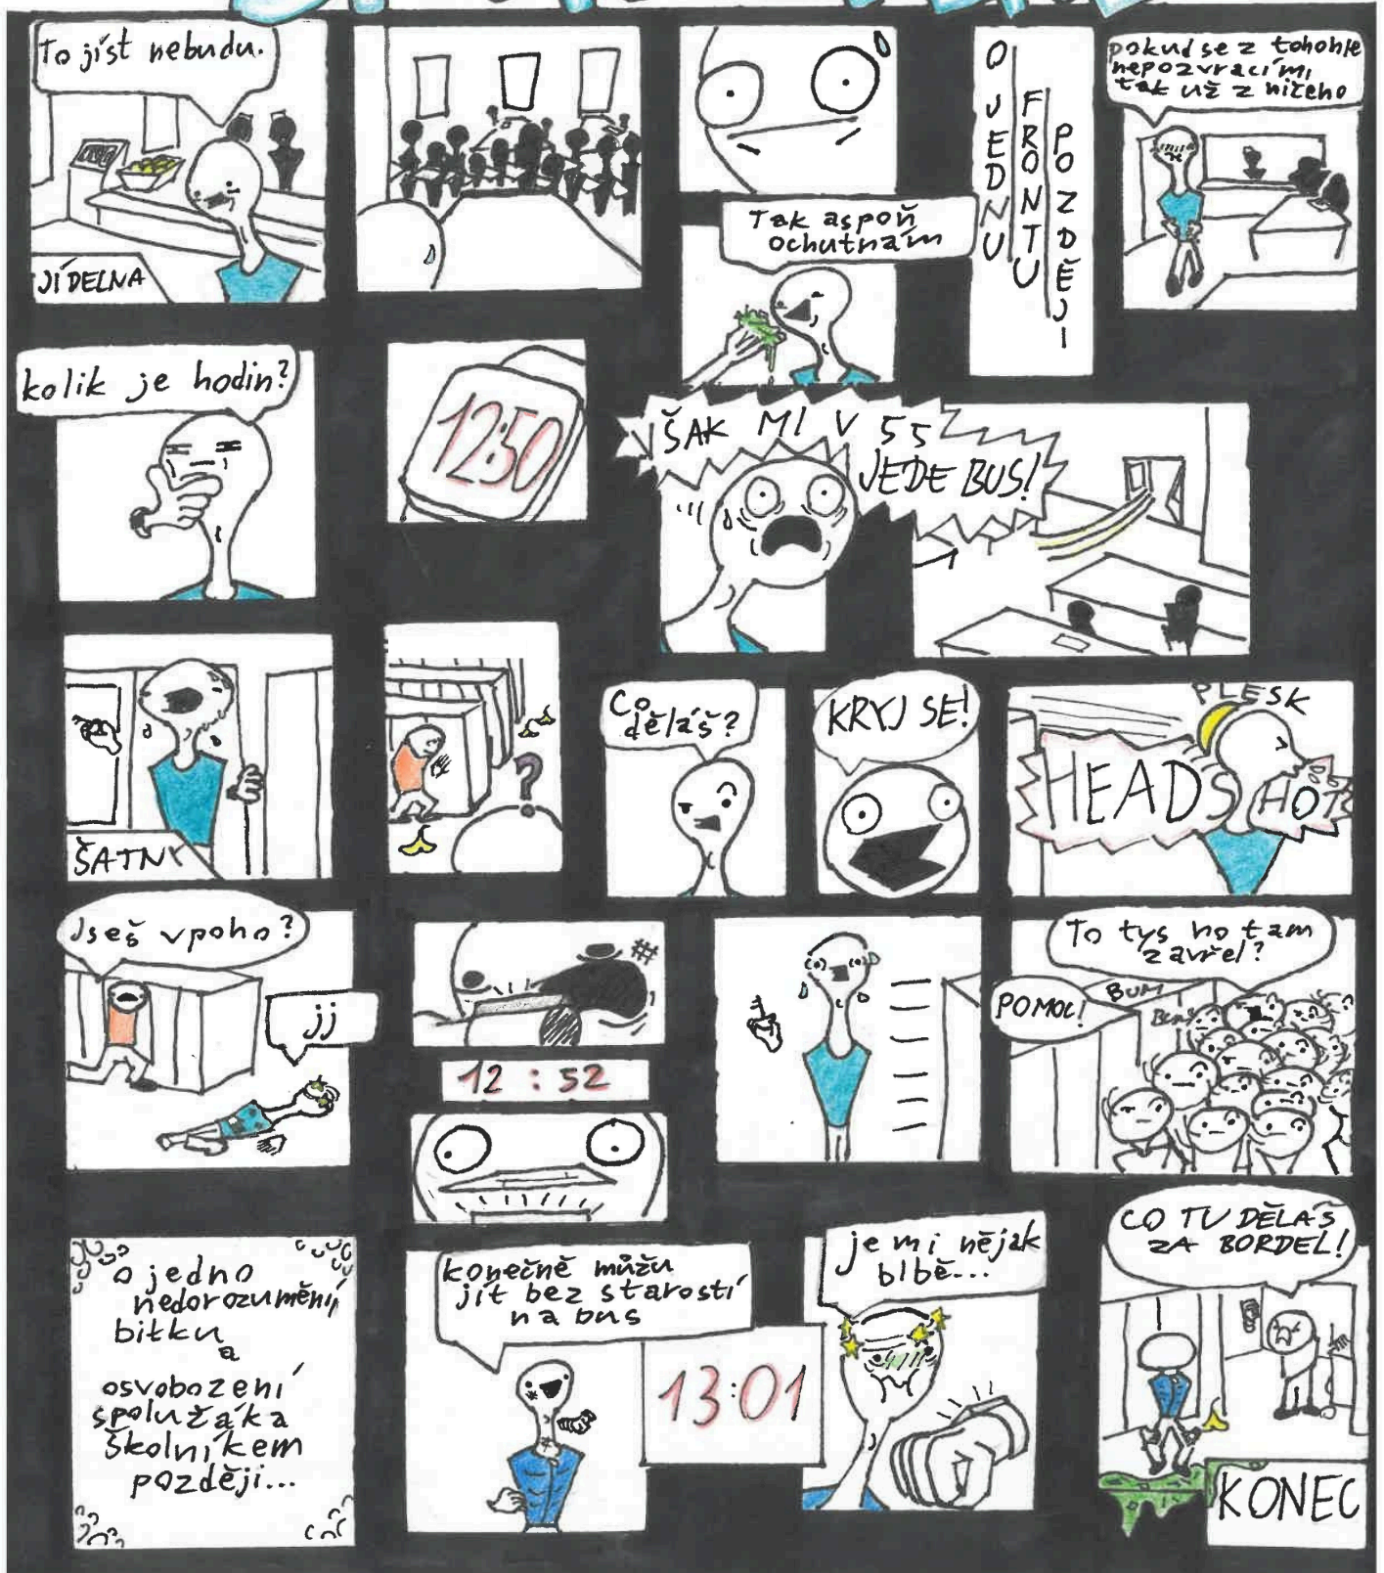 To jíst nebudu.
JÍDELNA
Tak aspoň
ochutnám
O JEDNU
FRONTU
POZDĚJI
pokud se z tohohle
nepozvracími
tak už z ničeho
kolik je hodin?
12:50
VŠAK MI V 55
JEDE BUS!
ŠATNY
?
Co
děláš?
KRYJ SE!
PLESK
HEADSHOT
Jseš vpoho?
jj
12:52
To tys ho tam
zavřel?
POMOC!
BUM
BUM
o jedno
nedorozumění,
bitku
a
osvobození
spolužáka
školníkem
později...
konečně můžu
jít bez starostí
na bus
13:01
je mi nějak
blbě...
CO TU DĚLÁŠ
ZA BORDEL!
KONEC